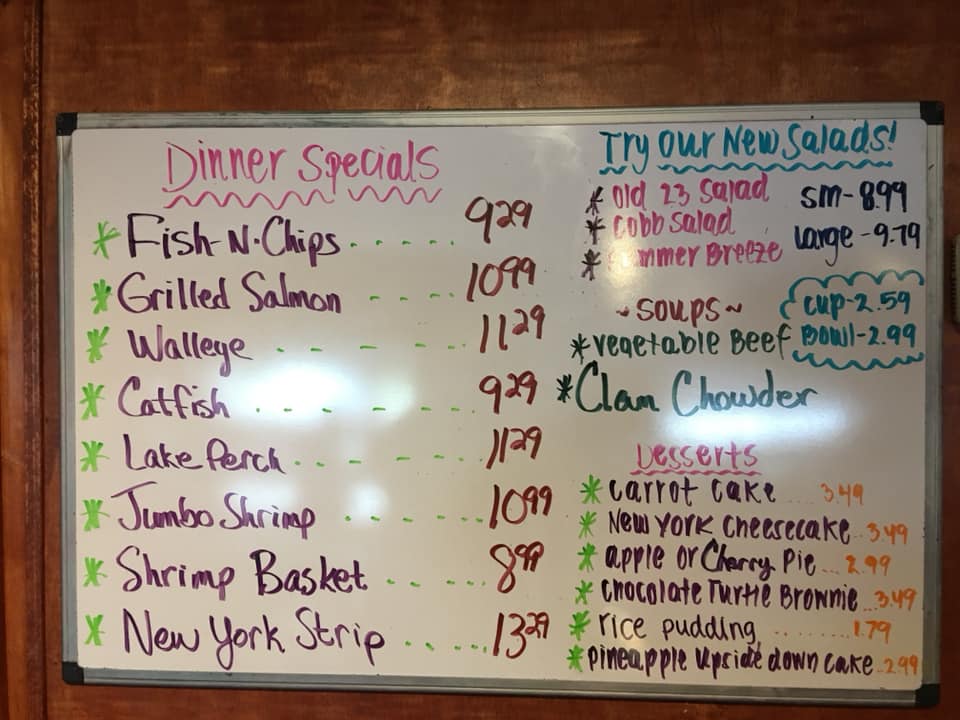 Dinner Specials
* Fish-N-Chips..... 9 29
* Grilled Salmon - - - - 10 99
* Walleye - - - - - 11 29
* Catfish - - - - - - 9 29
* Lake Perch - - - - - - 11 29
* Jumbo Shrimp - - - - - 10 99
* Shrimp Basket ..... 8 99
* New York Strip ..... 13 29
Try Our New Salads!
* Old 23 Salad sm-8.99
* Cobb Salad
* Summer Breeze Large-9.79
~Soups~ Cup-2.59
*Vegetable Beef Bowl-2.99
*Clam Chowder
Desserts
* Carrot Cake .... 3.49
* New York Cheesecake..3.49
* apple or Cherry Pie ... 2.99
* Chocolate Turtle Brownie ...3.49
* rice pudding .........1.79
*Pineapple Upside down Cake..2.99